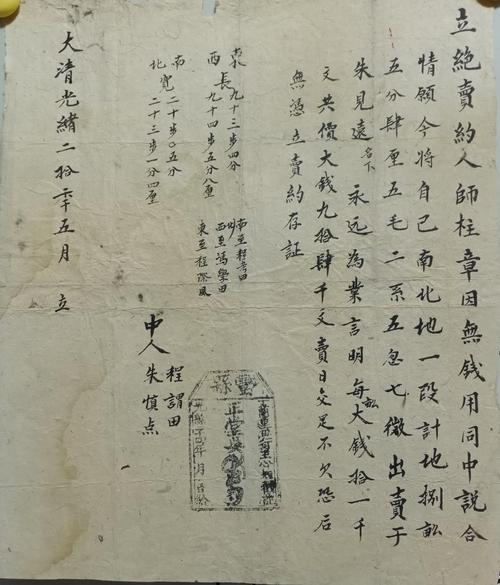 立絶賣約人師柱章因無錢用同中説合
情願今將自己南北地一段計地捌畝
五分肆厘五毛二系五忽七微出賣于
朱見遠名下 永远為業言明每畝大錢拾一千
文共價大錢九拾肆千文賣日交足不欠恐后
無憑立賣約存証
東 長 九十三步四分
西 九十四步五分八厘
南 寬 二十步〇五分
北 二十三步一分四厘
南至程考田
西至馮學田
東至程際風
中人 程謂田
朱慎点
大清光緒二拾年五月 立
靈縣
正堂吳